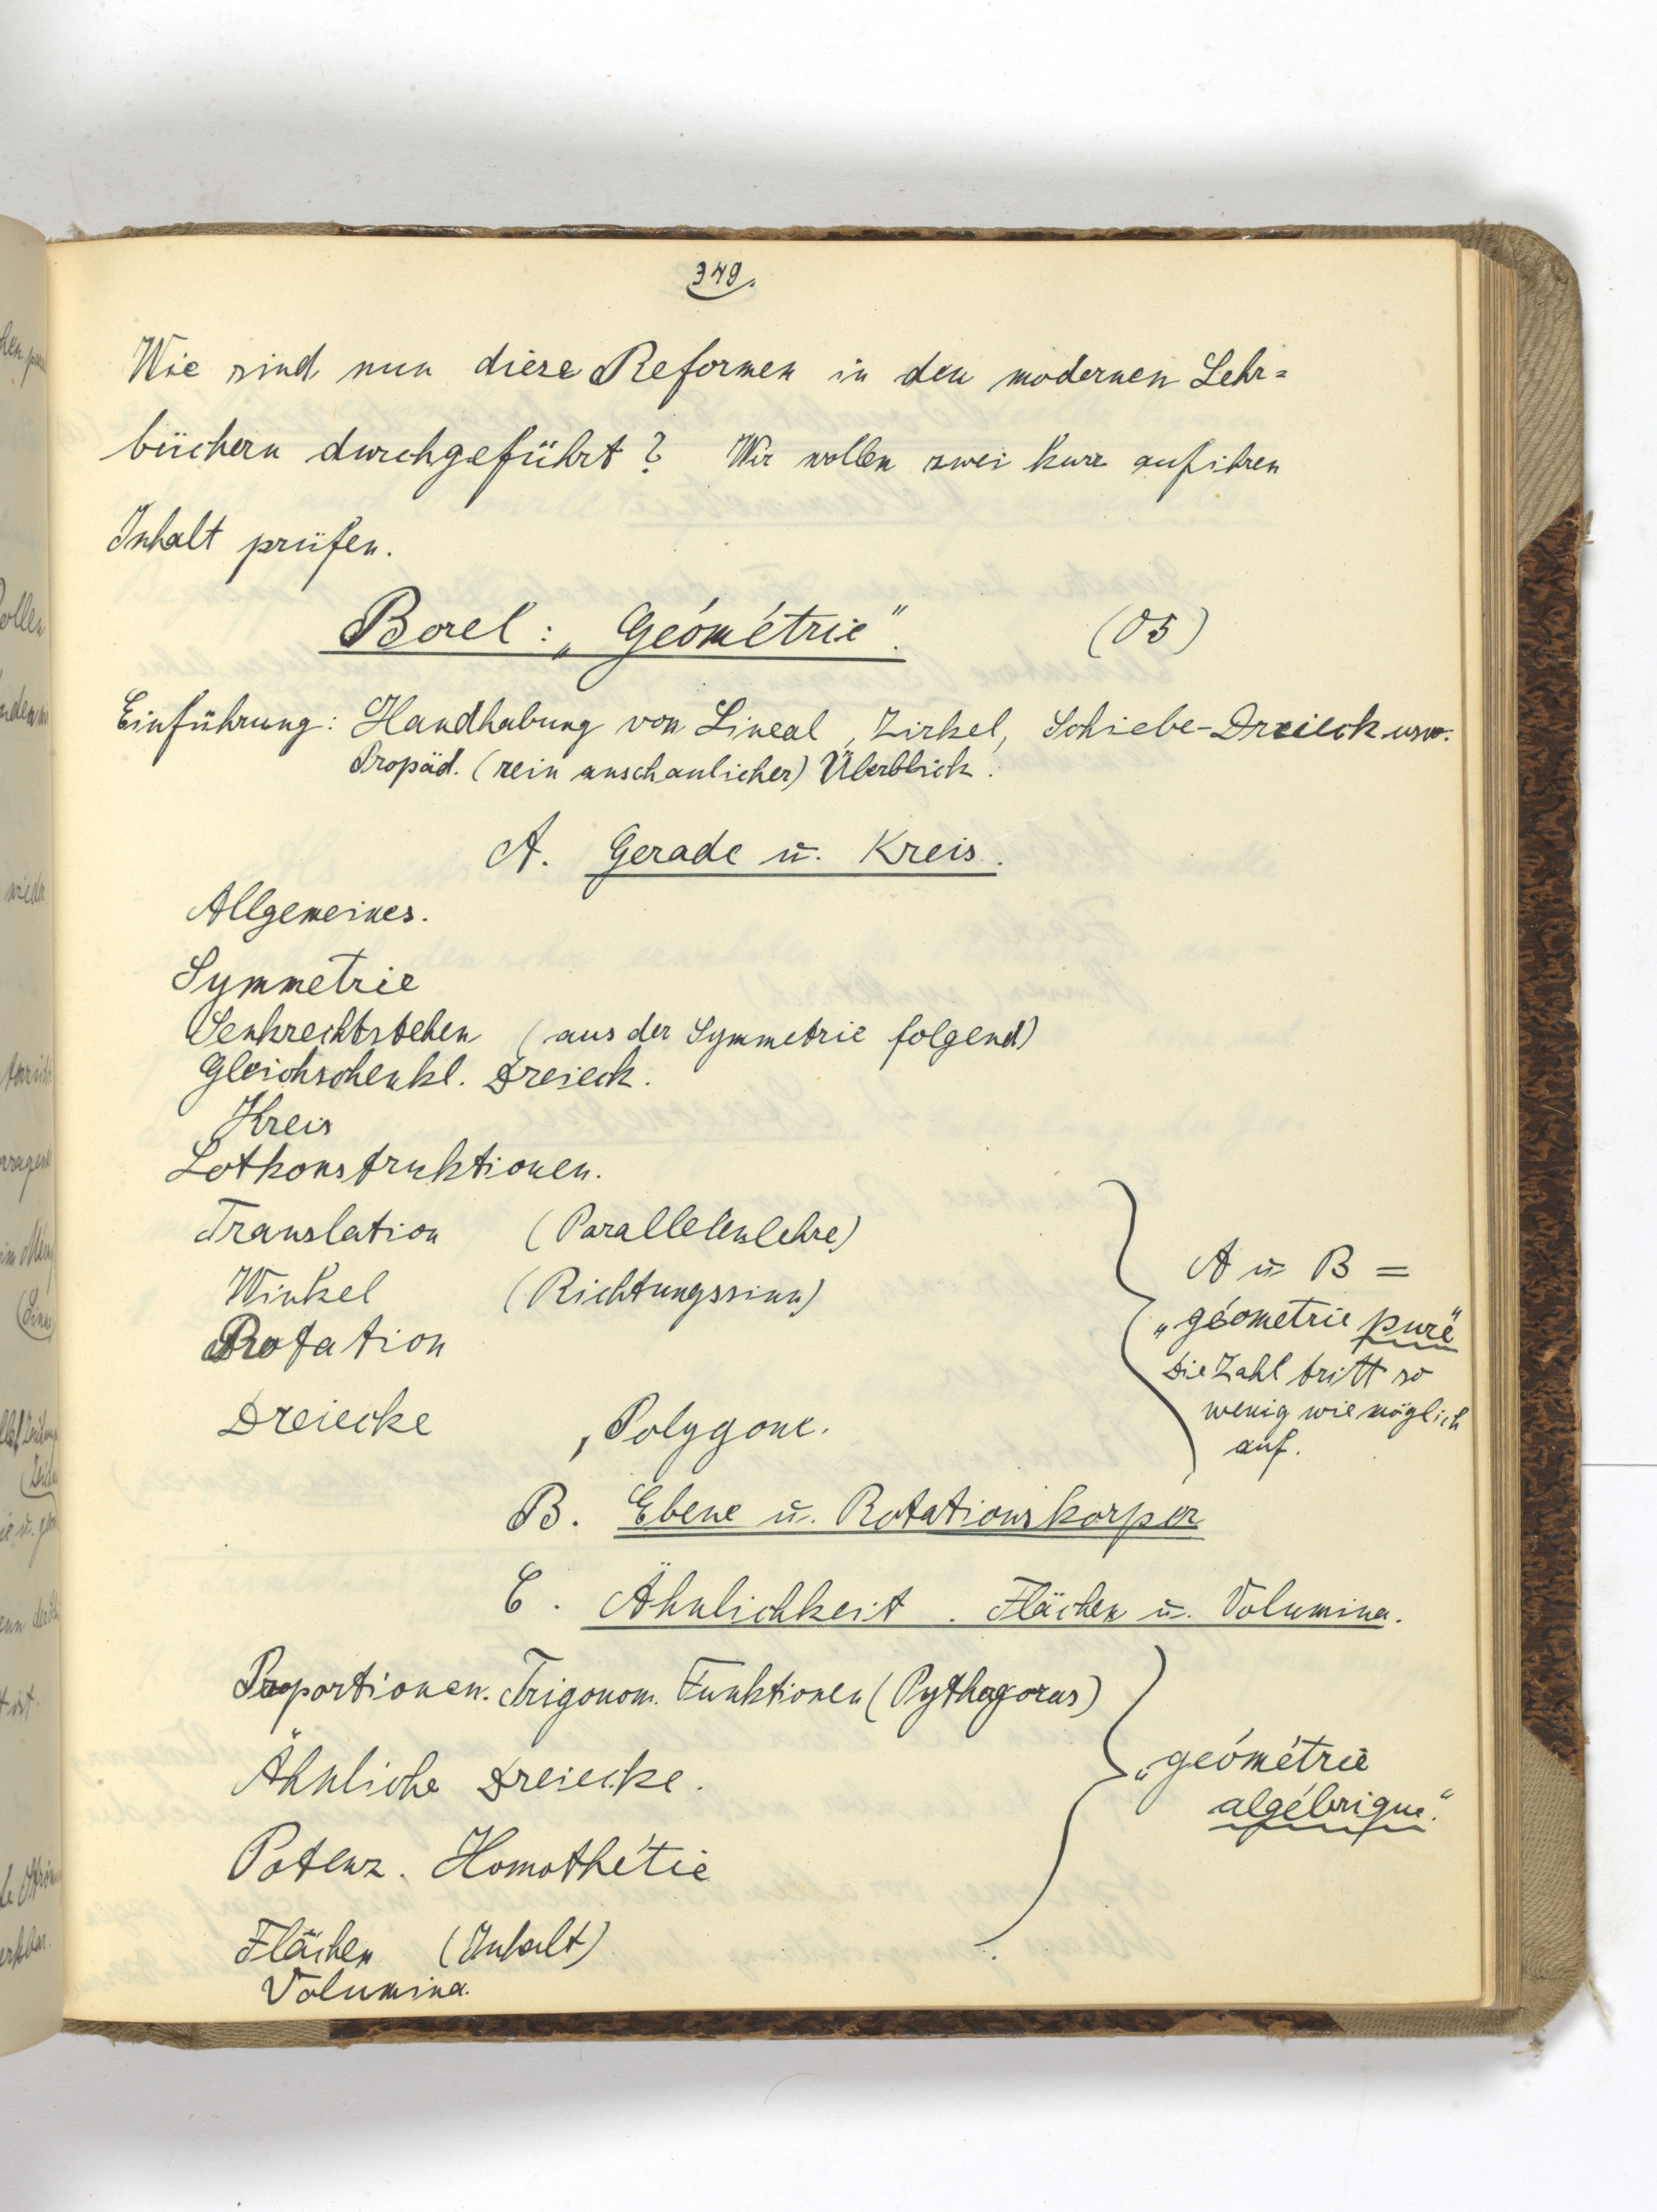 349.
Wie sind nun diese Reformen in den modernen Lehr=
büchern durchgeführt? Wir wollen zwei kurz auf ihren
Inhalt prüfen.
Borel: „Géométrie". (05)
Einführung: Handhabung von Lineal, Zirkel, Schiebe-Dreieck usw.
Propäd. (rein anschaulicher) Überblick.
A. Gerade u. Kreis.
Allgemeines.
Symmetrie
Senkrechtstehen (aus der Symmetrie folgend)
Gleichschenkl. Dreieck.
Kreis
Lotkonstruktionen.
Translation (Parallelenlehre)
Winkel (Richtungssinn)
Rotation
Dreiecke, Polygone.
A u B =
„géometrie pure"
Die Zahl tritt so
wenig wie möglich
auf.
B. Ebene u. Rotationskörper
C. Ähnlichkeit. Flächen u. Volumina.
Proportionen. Trigonom. Funktionen (Pythagoras)
Ähnliche Dreiecke.
Potenz. Homothétie
Flächen (Inhalt)
Volumina.
„géométrie
algébrique."